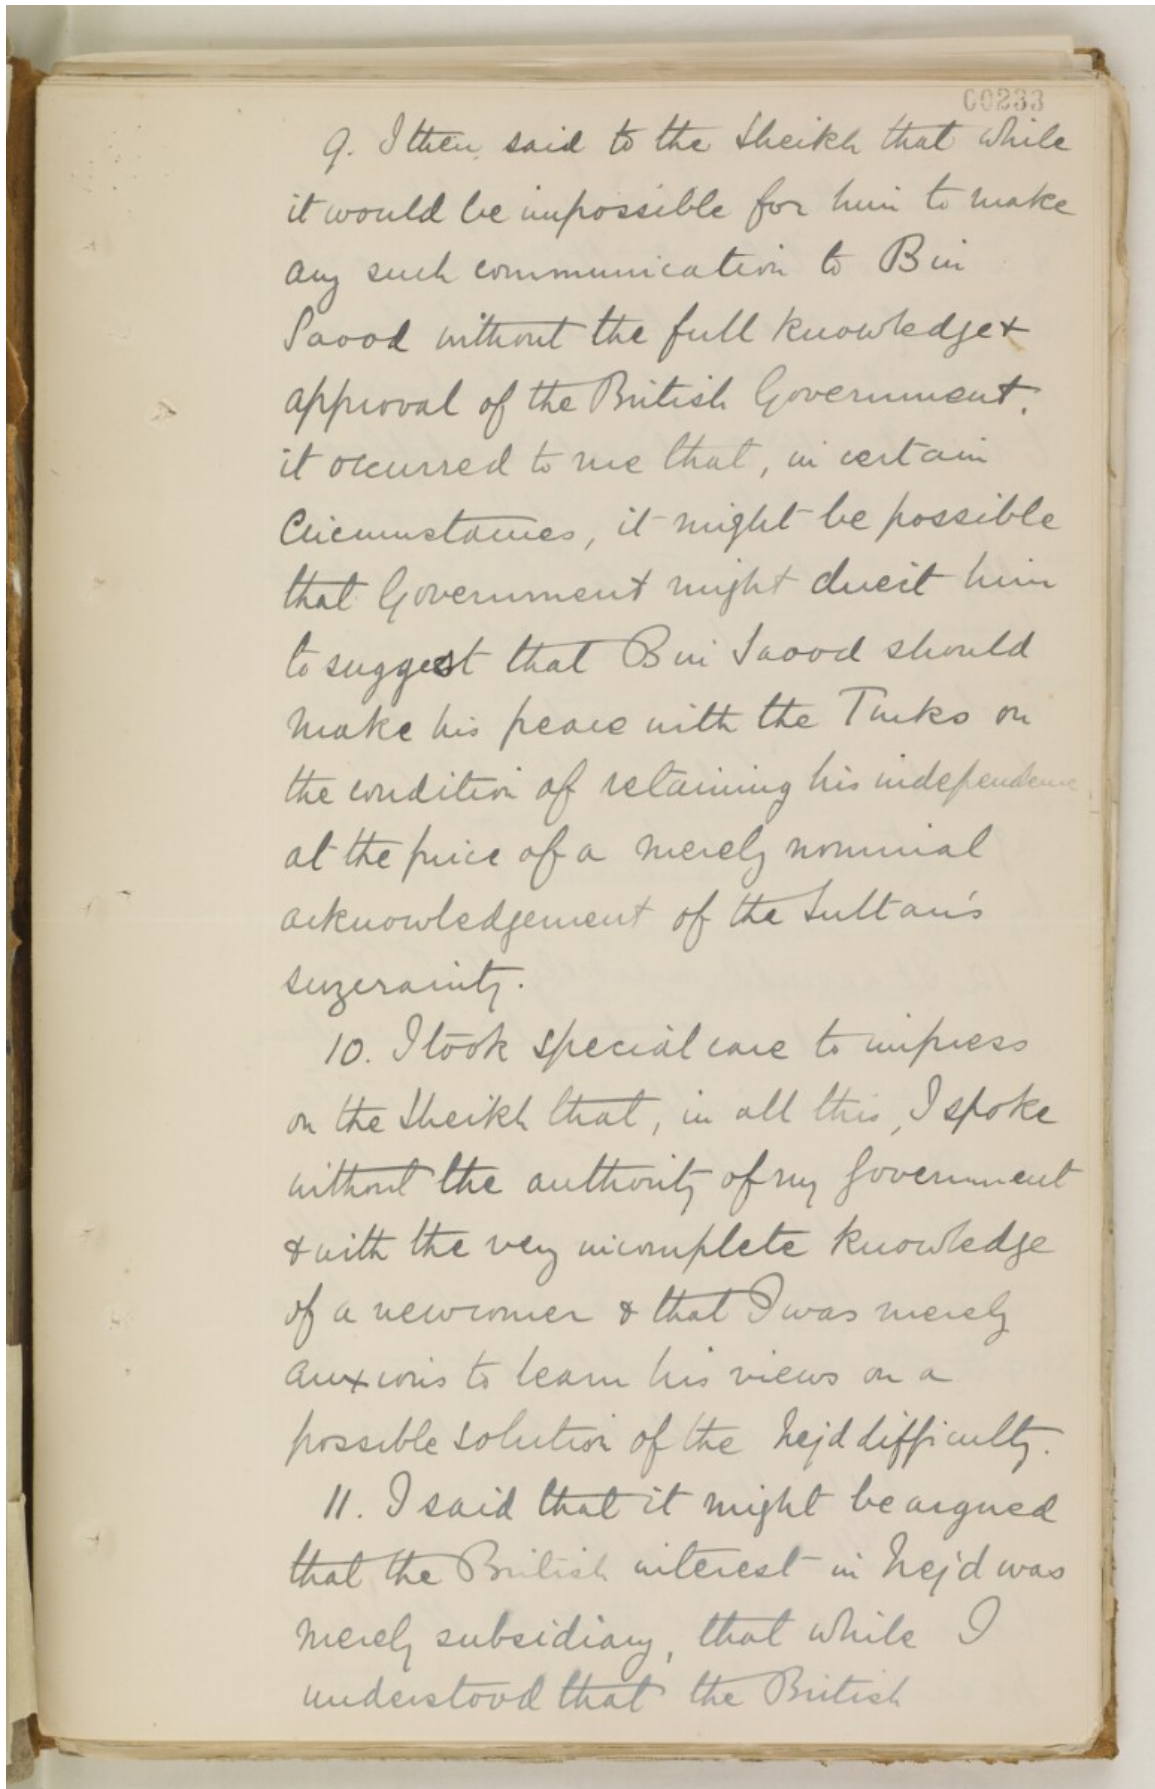 00233
9. I then said to the Sheikh that while
it would be impossible for him to make
any such communication to Bin
Saood without the full knowledge &
approval of the British Government,
it occurred to me that, in certain
Circumstances, it might be possible
that Government might direct him
to suggest that Bin Saood should
make his peace with the Turks on
the condition of retaining his independence
at the price of a merely nominal
acknowledgement of the Sultan's
suzerainty.
10. I took special care to impress
on the Sheikh that, in all this, I spoke
without the authority of my Government
& with the very incomplete knowledge
of a newcomer & that I was merely
anxious to learn his views on a
possible solution of the Nejd difficulty.
11. I said that it might be argued
that the British interest in Nejd was
merely subsidiary, that while I
understood that the British